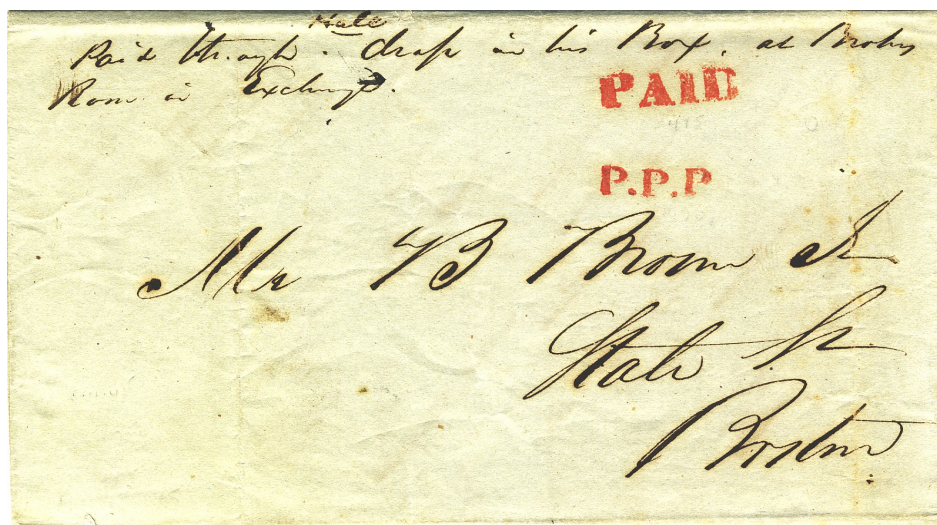 Hale
Paid through . drop in his Box, at Brokers
Room in Exchange.
PAID
415
P.P.P
Mr B Brown Jr
State St
Boston